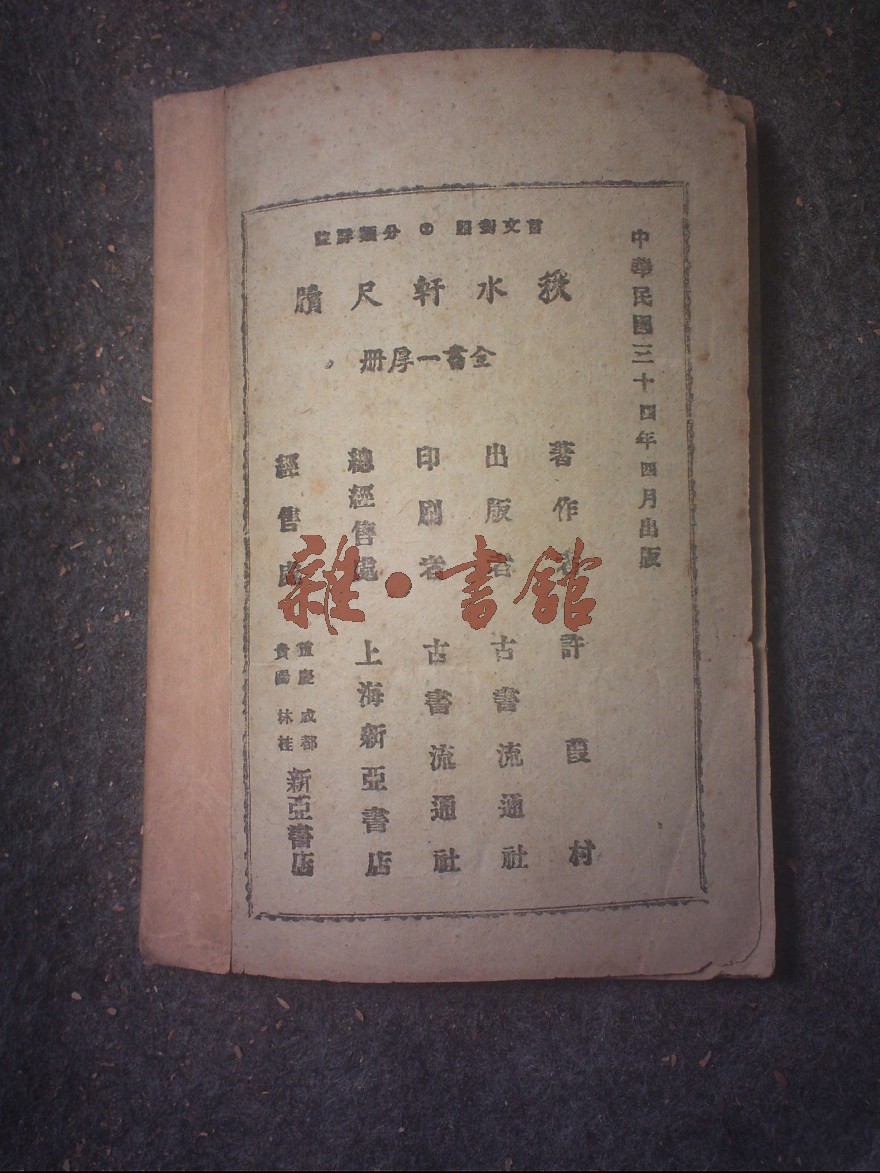 中華民國三十四年四月出版
言文對照 ⊙ 分類詳註
秋水軒尺牘
全書一厚冊
著作者 許葭村
出版者 古書流通社
印刷者 古書流通社
總經售處 上海新亞書店
經售處 重慶 成都 貴陽 桂林 新亞書店
雜·書館